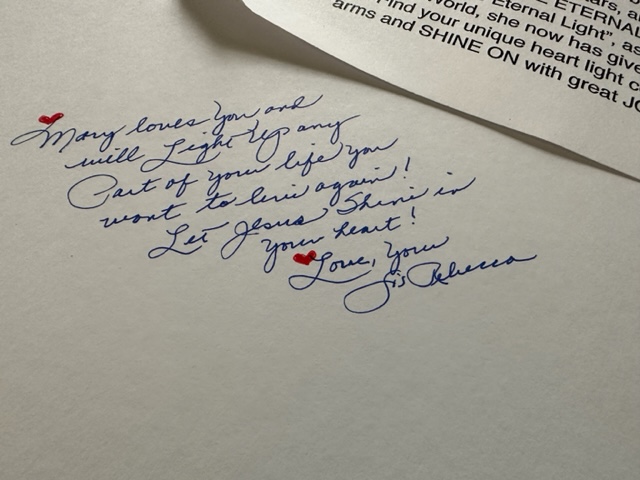 Mary loves You and
will Light Up any
Part of your life you
want to live again!
Let Jesus Shine in
your heart!
Love, your
Sis Rebecca
E ETERNAL
Eternal Light", as
World, she now has give
Find your unique heart light c
arms and SHINE ON with great JO